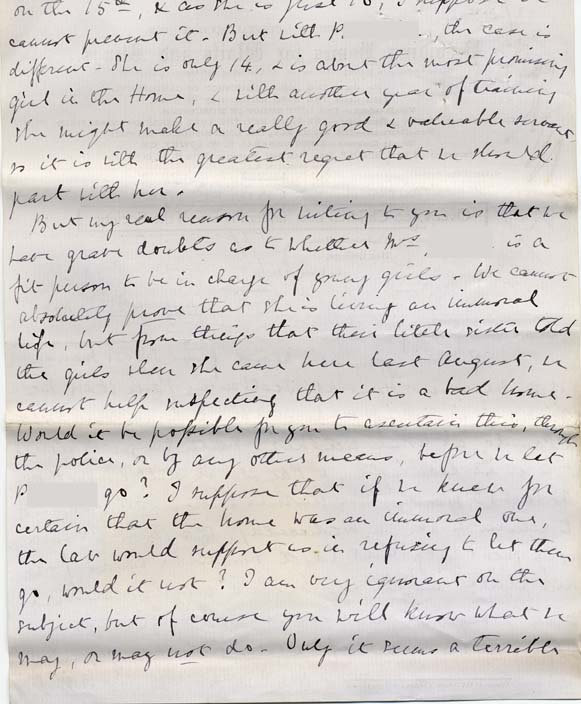 on the 15th, & as she is just 16, I suppose we
cannot prevent it. But with P. , the case is
different. She is only 14, & is about the most promising
girl in the Home, & with another year of training
she might make a really good & valuable servant
so it is with the greatest regret that we should
part with her.
But my real reason for writing to you is that we
have grave doubts as to whether Mrs. is a
fit person to be in charge of young girls. We cannot
absolutely prove that she is living an immoral
life, but from things that their little sister told
the girls when she came here last August, we
cannot help suspecting that it is a bad home.
Would it be possible for you to ascertain this, through
the police, or by any other means, before we let
P go? I suppose that if we knew for
certain that the home was an immoral one,
the law would support us in refusing to let them
go, would it not? I am very ignorant on the
subject, but of course you will know what we
may, or may not do. Only it seems a terrible